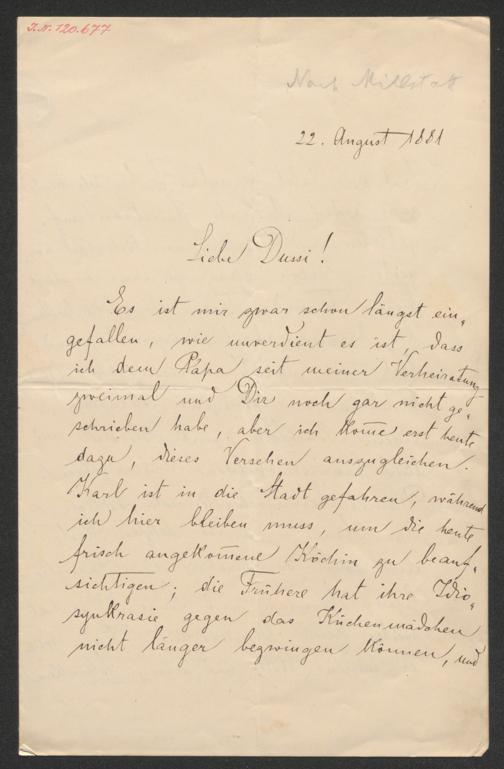 I.N. 120.677
Nach Millstatt
22. August 1881
Liebe Dussi!
Es ist mir zwar schon längst ein„
gefallen, wie unverdient es ist, dass
ich dem Papa seit meiner Verheiratung
zweimal und Dir noch gar nicht ge„
schrieben habe, aber ich kom̄e erst heute
dazu, dieses Versehen auszugleichen.
Karl ist in die Stadt gefahren, während
ich hier bleiben muss, um die heute
frisch angekom̄ene Köchin zu beauf„
sichtigen; die Frühere hat ihre Idio„
synkrasie gegen das Küchenmädchen
nicht länger bezwingen können, und